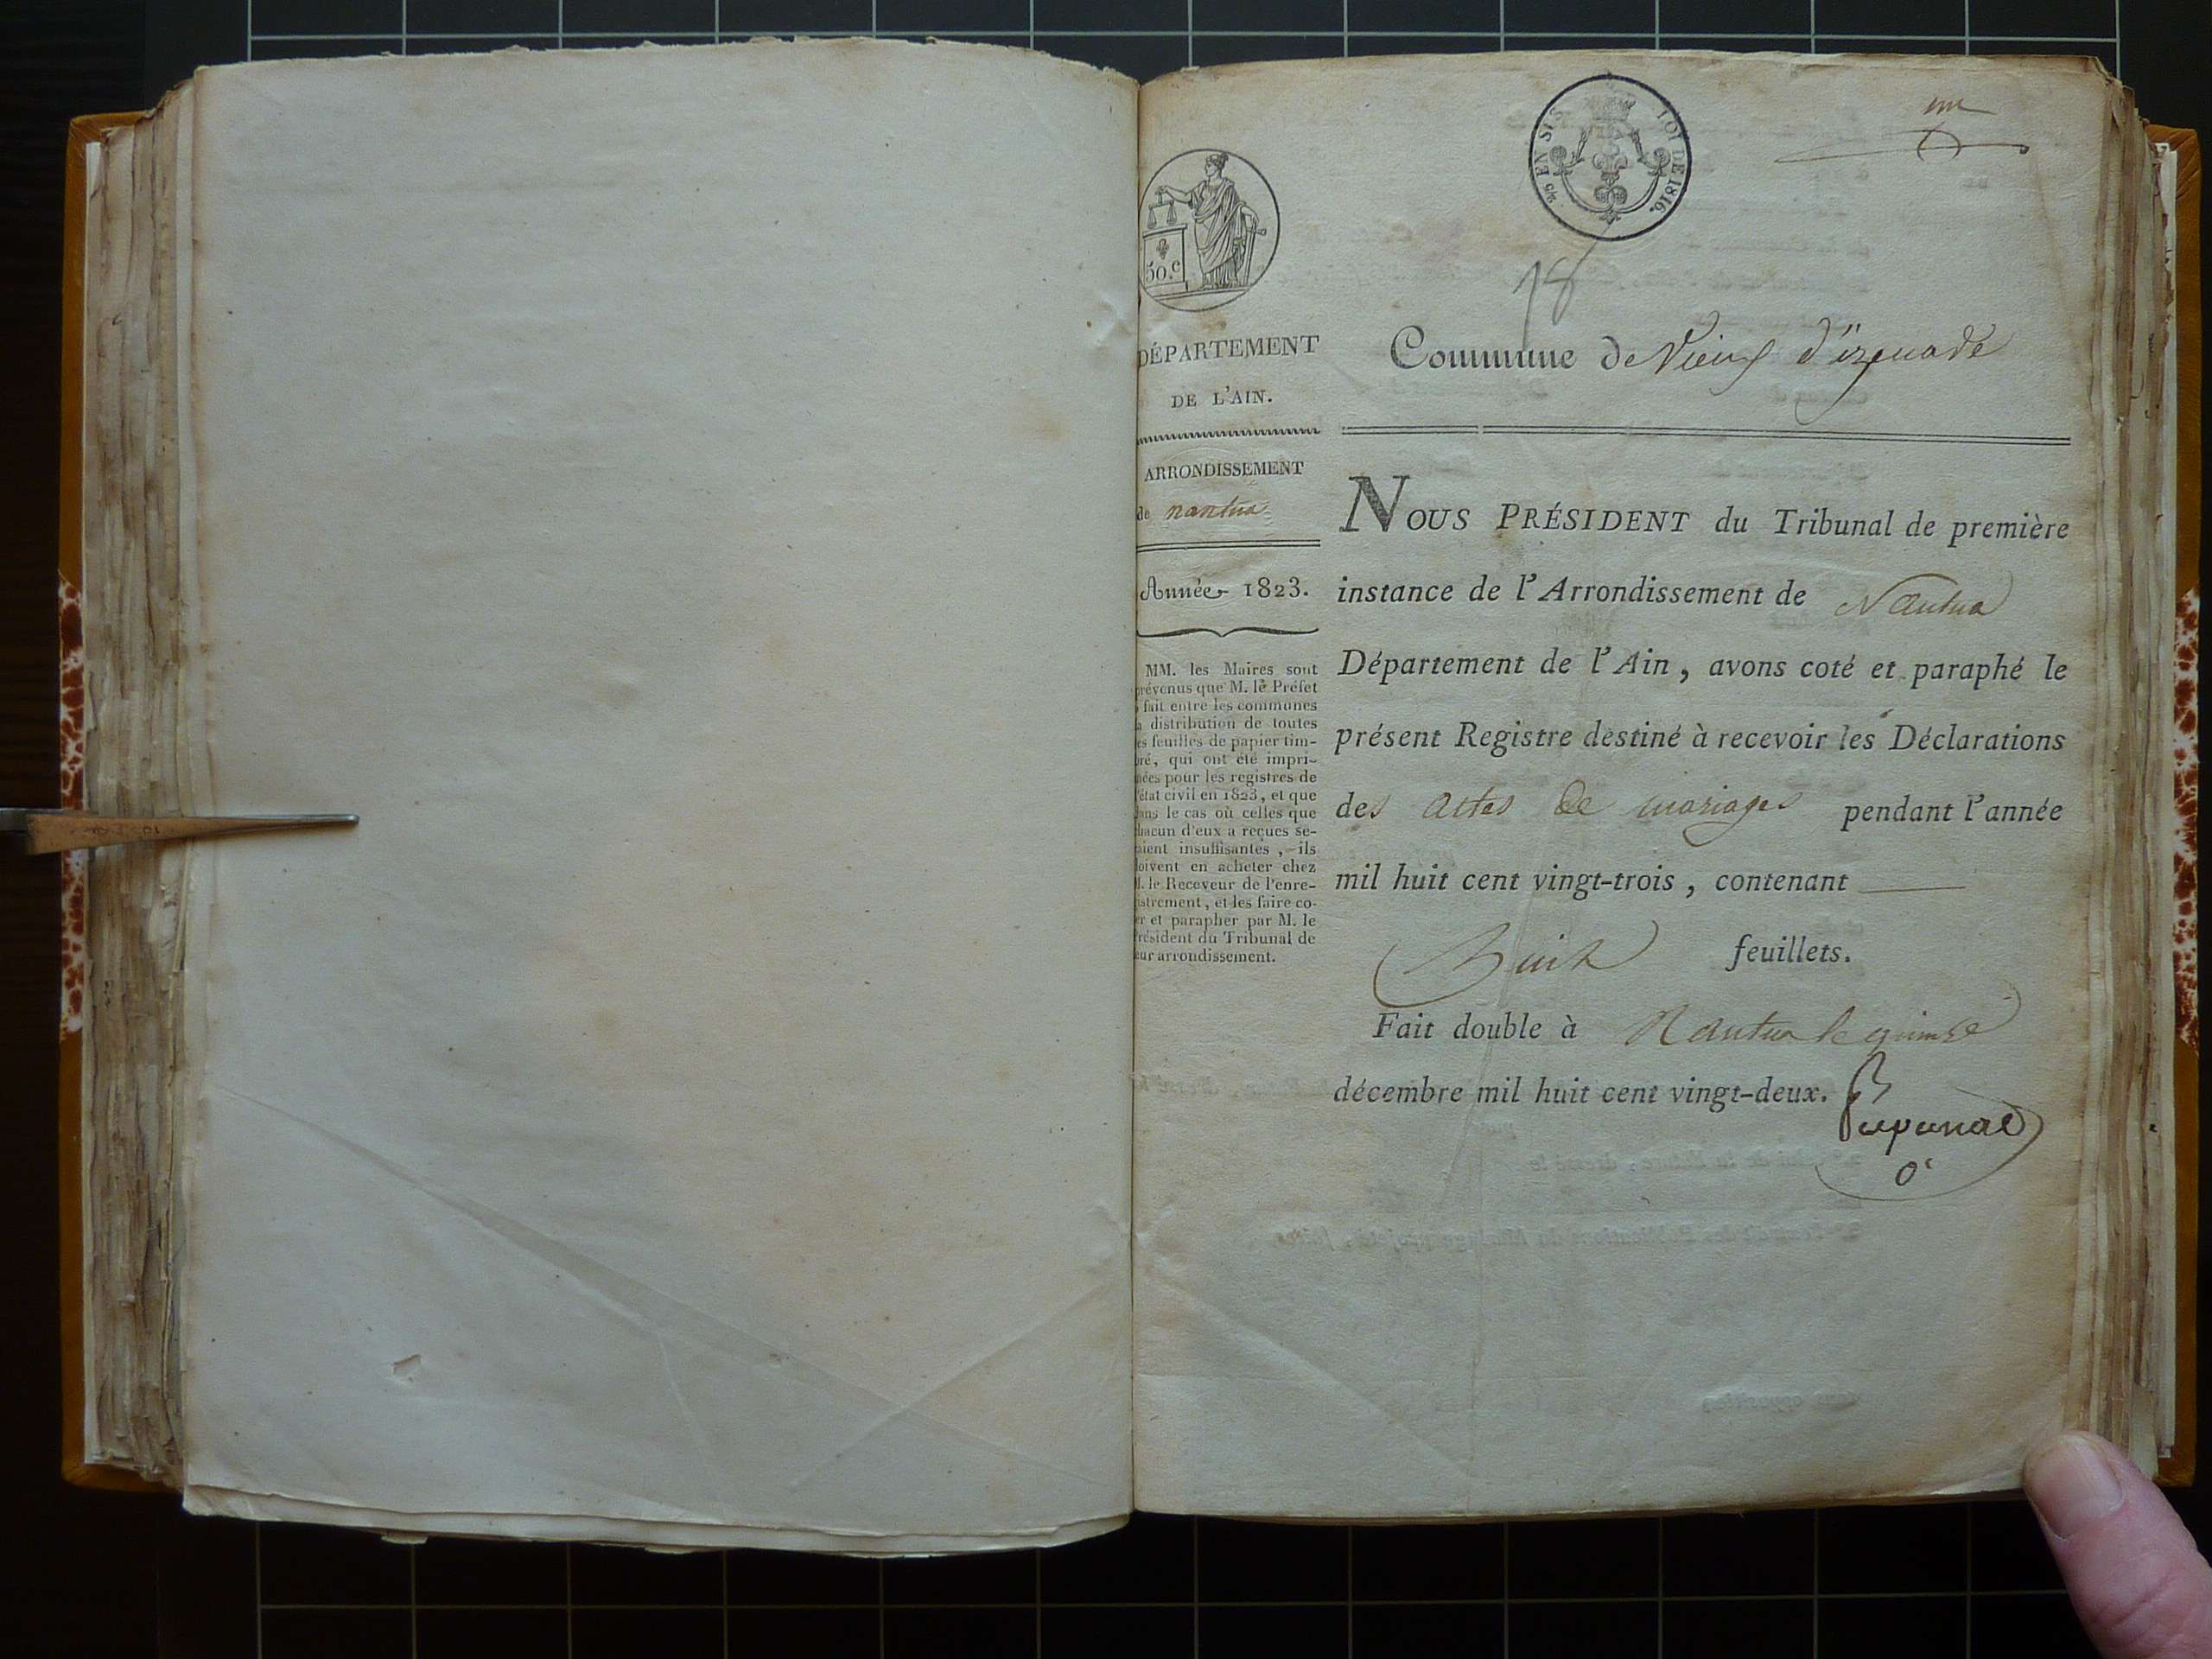 un
EN SUS LOI DE 1816.
50.c
18
DÉPARTEMENT
DE L'AIN.
ARRONDISSEMENT
de nantua
Année 1823.
MM. les Maires sont
prévenus que M. le Préfet
fait entre les communes
la distribution de toutes
les feuilles de papier tim-
bré, qui ont été impri-
mées pour les registres de
l'état civil en 1823, et que
dans le cas où celles que
chacun d'eux a reçues se-
raient insuffisantes, ils
doivent en acheter chez
M. le Receveur de l'enre-
gistrement, et les faire co-
ter et parapher par M. le
Président du Tribunal de
leur arrondissement.
Commune de Vieux d'izenade
NOUS PRÉSIDENT du Tribunal de première
instance de l'Arrondissement de Nantua
Département de l'Ain, avons coté et paraphé le
présent Registre destiné à recevoir les Déclarations
des actes de mariages pendant l'année
mil huit cent vingt-trois, contenant
huit feuillets.
Fait double à Nantua le quinze
décembre mil huit cent vingt-deux.